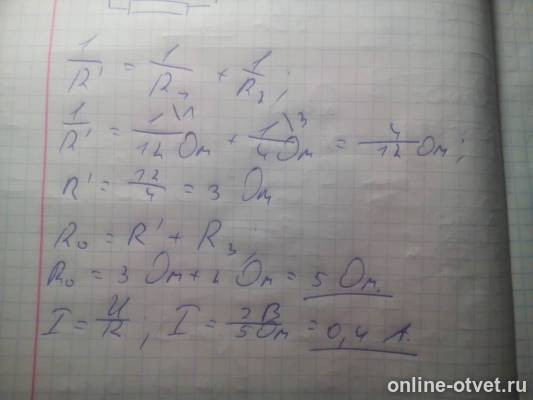 1/R' = 1/R₁ + 1/R₂;
1/R' = 1\1/12 Ом + 1\3/4 Ом = 4/12 Ом;
R' = 12/4 = 3 Ом
R₀ = R' + R₃;
R₀ = 3 Ом + 2 Ом = 5 Ом.
I = U/R; I = 2В/5Ом = 0,4 А.
online-otvet.ru